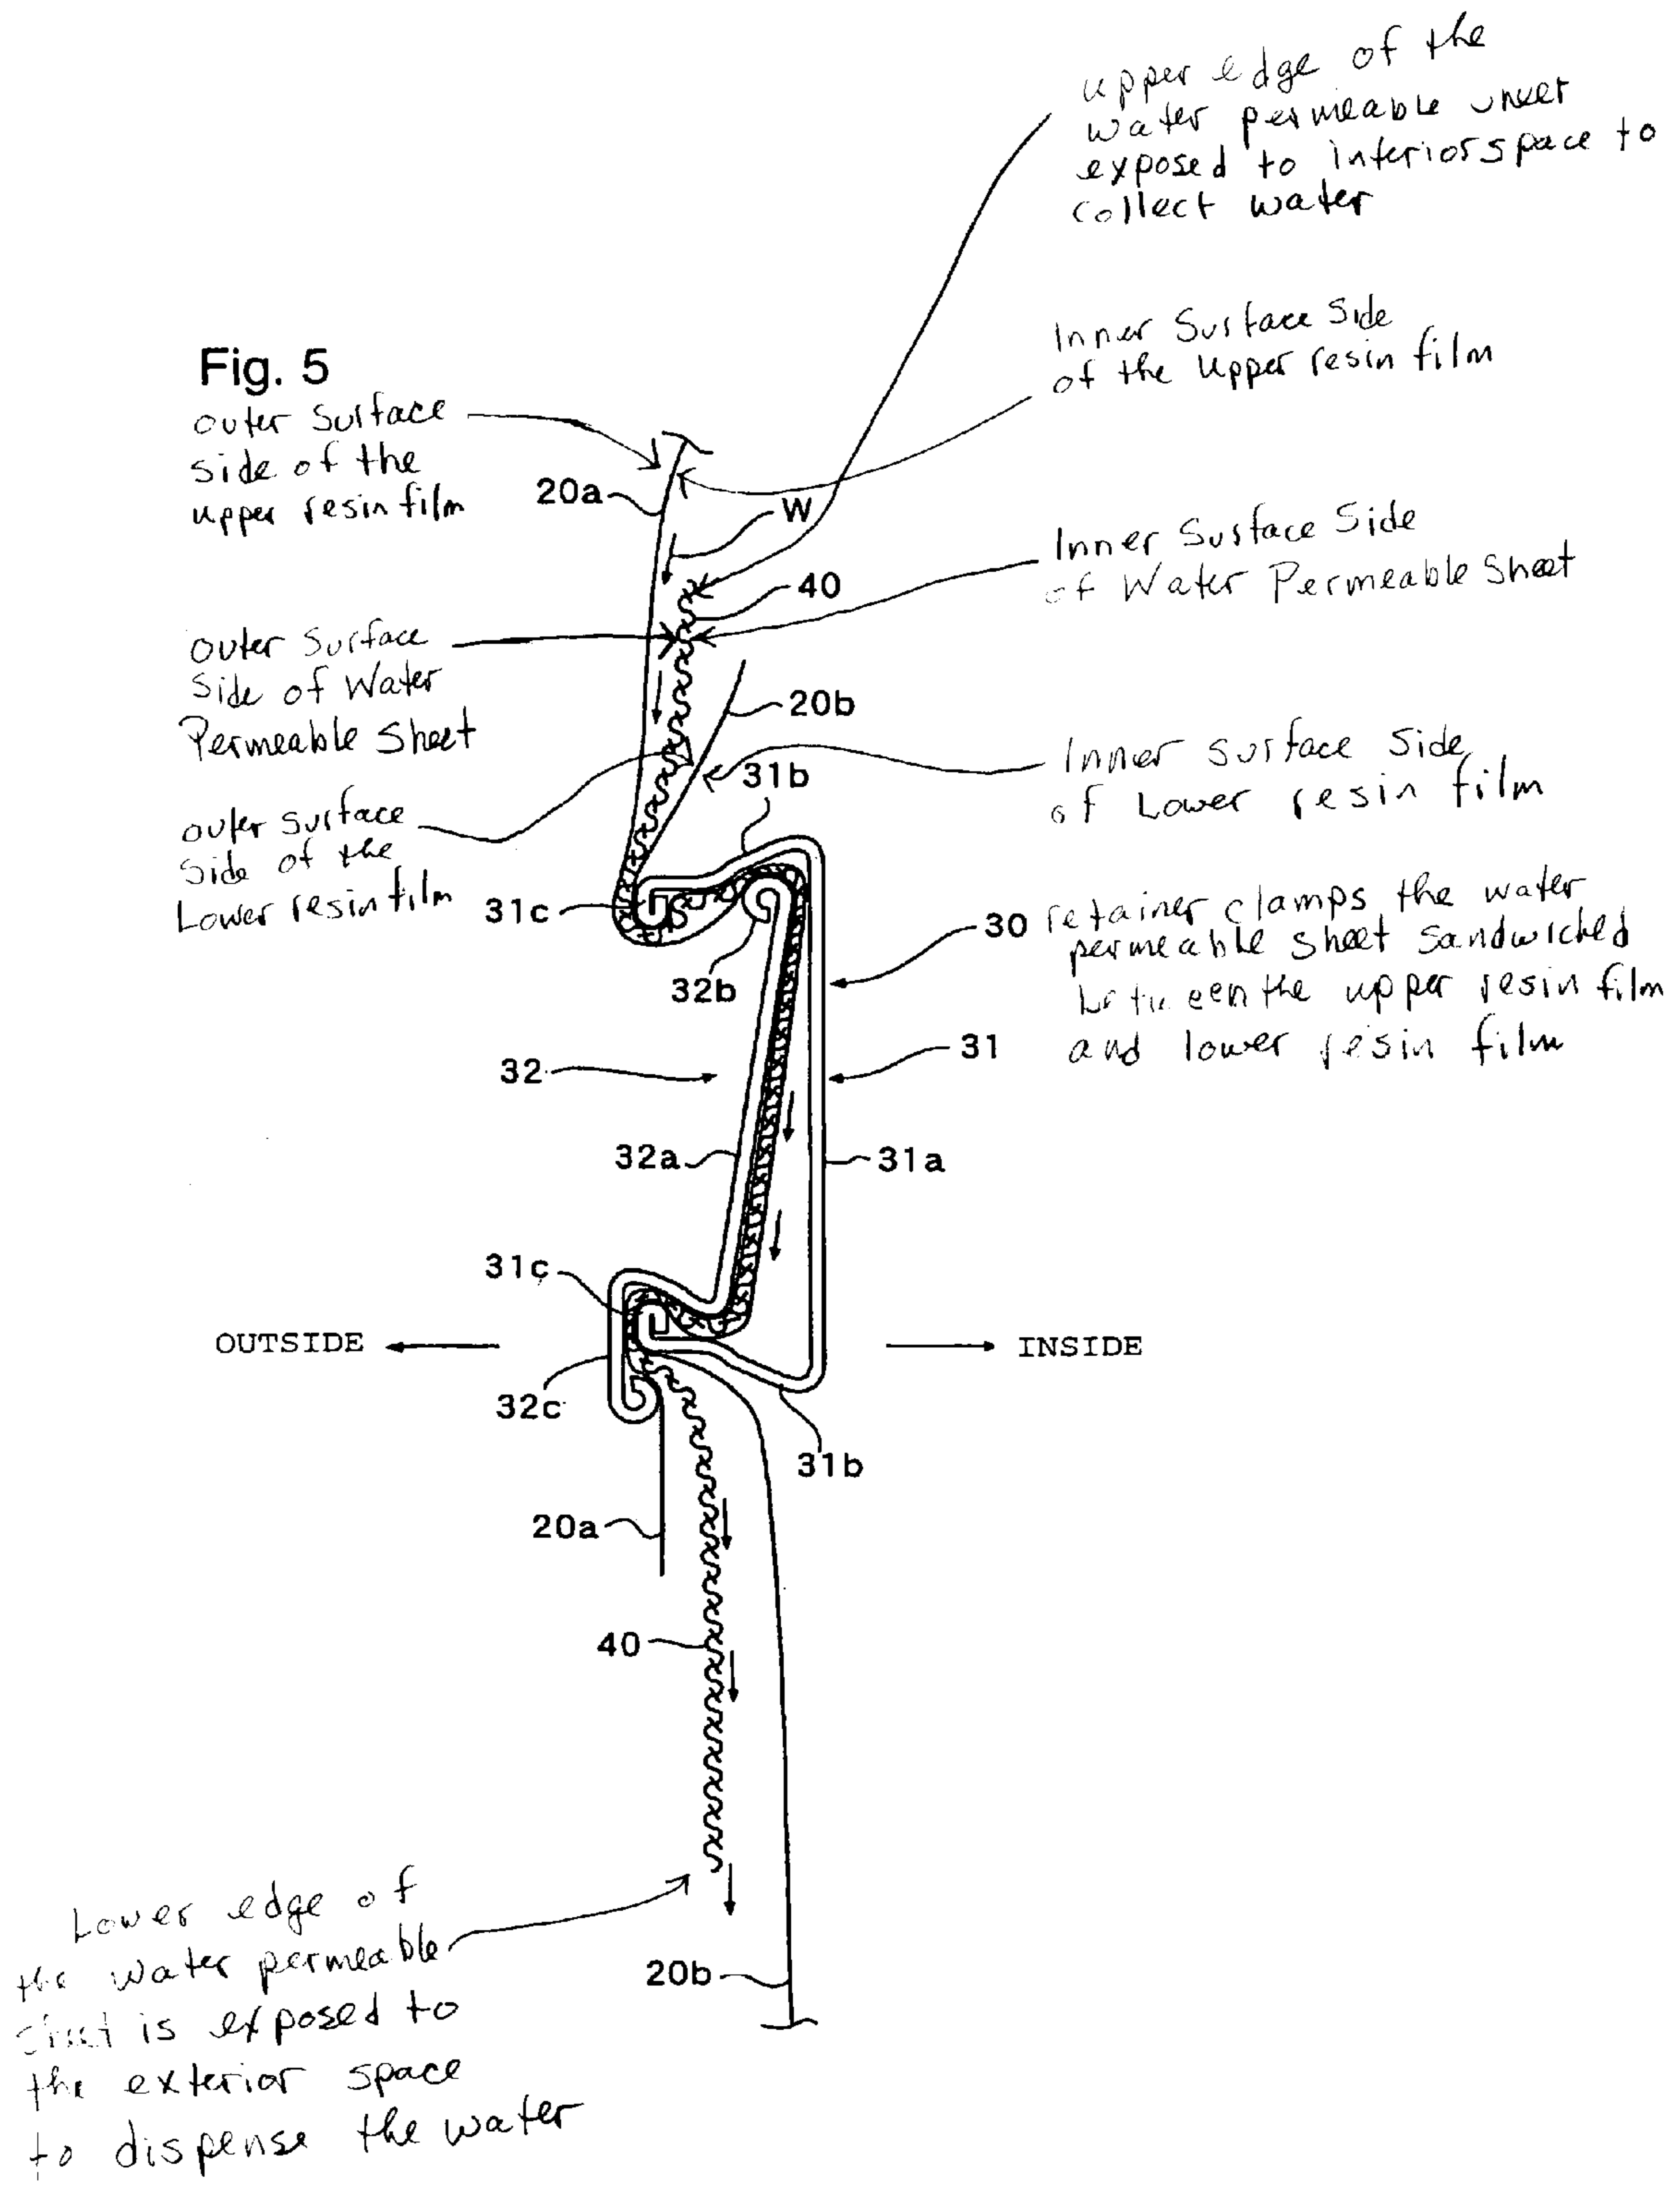 upper edge of the
water permeable sheet
exposed to interior space to
collect water
Inner Surface Side
of the upper resin film
Fig. 5
outer surface
side of the
upper resin film
20a
W
Inner Surface Side
of Water Permeable Sheet
40
outer surface
side of water
Permeable Sheet
20b
Inner surface side
of Lower resin film
31b
outer surface
side of the
Lower resin film
31c
30 retainer clamps the water
permeable sheet sandwiched
between the upper resin film
and lower resin film
32b
31
32
32a
31a
31c
OUTSIDE
INSIDE
32c
31b
20a
40
Lower edge of
the water permeable
sheet is exposed to
the exterior space
to dispense the water
20b